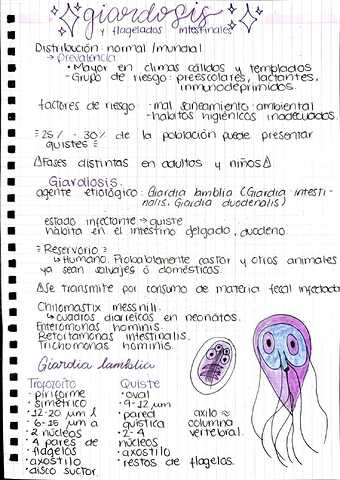 giardosis
y flagelados intestinales
Distribución normal/mundial
→ Prevalencia
• Mayor en climas cálidos y templados
- Grupo de riesgo: preescolares, lactantes,
inmunodeprimidos.
factores de riesgo -mal saneamiento ambiental
-habitos higiénicos inadecuados.
25% - 30% de la población puede presentar
quistes
Fases distintas en adultos y niños
Giardiosis.
agente etiologico: Giardia lamblia (Giardia intesti-
nalis, Giardia duodenalis)
estado infectante → quiste
habita en el intestino delgado, duodeno.
Reservorio
↳ Humano. Probablemente castor y otros animales
ya sean salvajes ó domésticos.
Se transmite por consumo de material fecal infectado
Chilomastix messnili.
↳ cuadros diarreicos en neonatos.
Enteromonas hominis.
Retortamonas intestinalis.
Trichomonas hominis.
Giardia lamblia
Trofozoito
• piriforme
• simétrico
• 12-20 µm l
• 6-15 µm a
• 2 núcleos
• 4 pares de
flagelos
• axostilo
• disco suctor.
Quiste
• oval
• 9-12 µm
• pared
quistica
• 2-4
núcleos
• axostilo
• restos de flagelos.
axilo ≈
columna
vertebral.